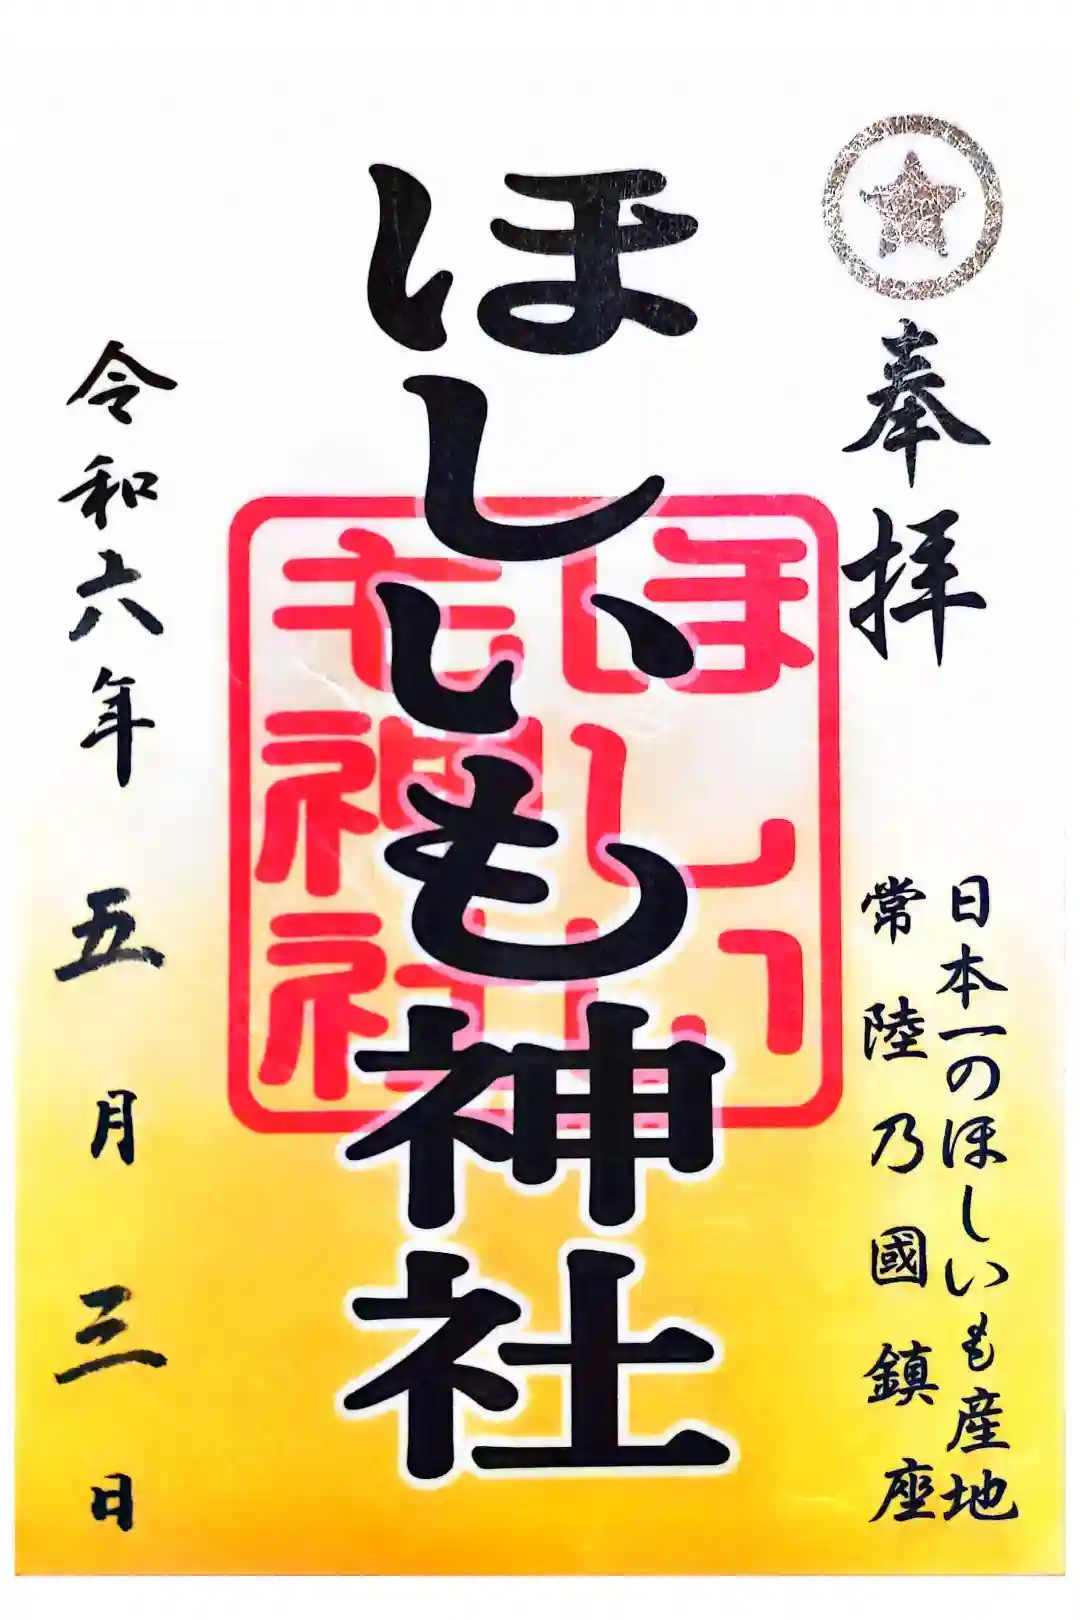 奉拝
日本一のほしいも産地
常陸乃國鎮座
ほしいも神社
ほしい
も神社
令和六年五月三日